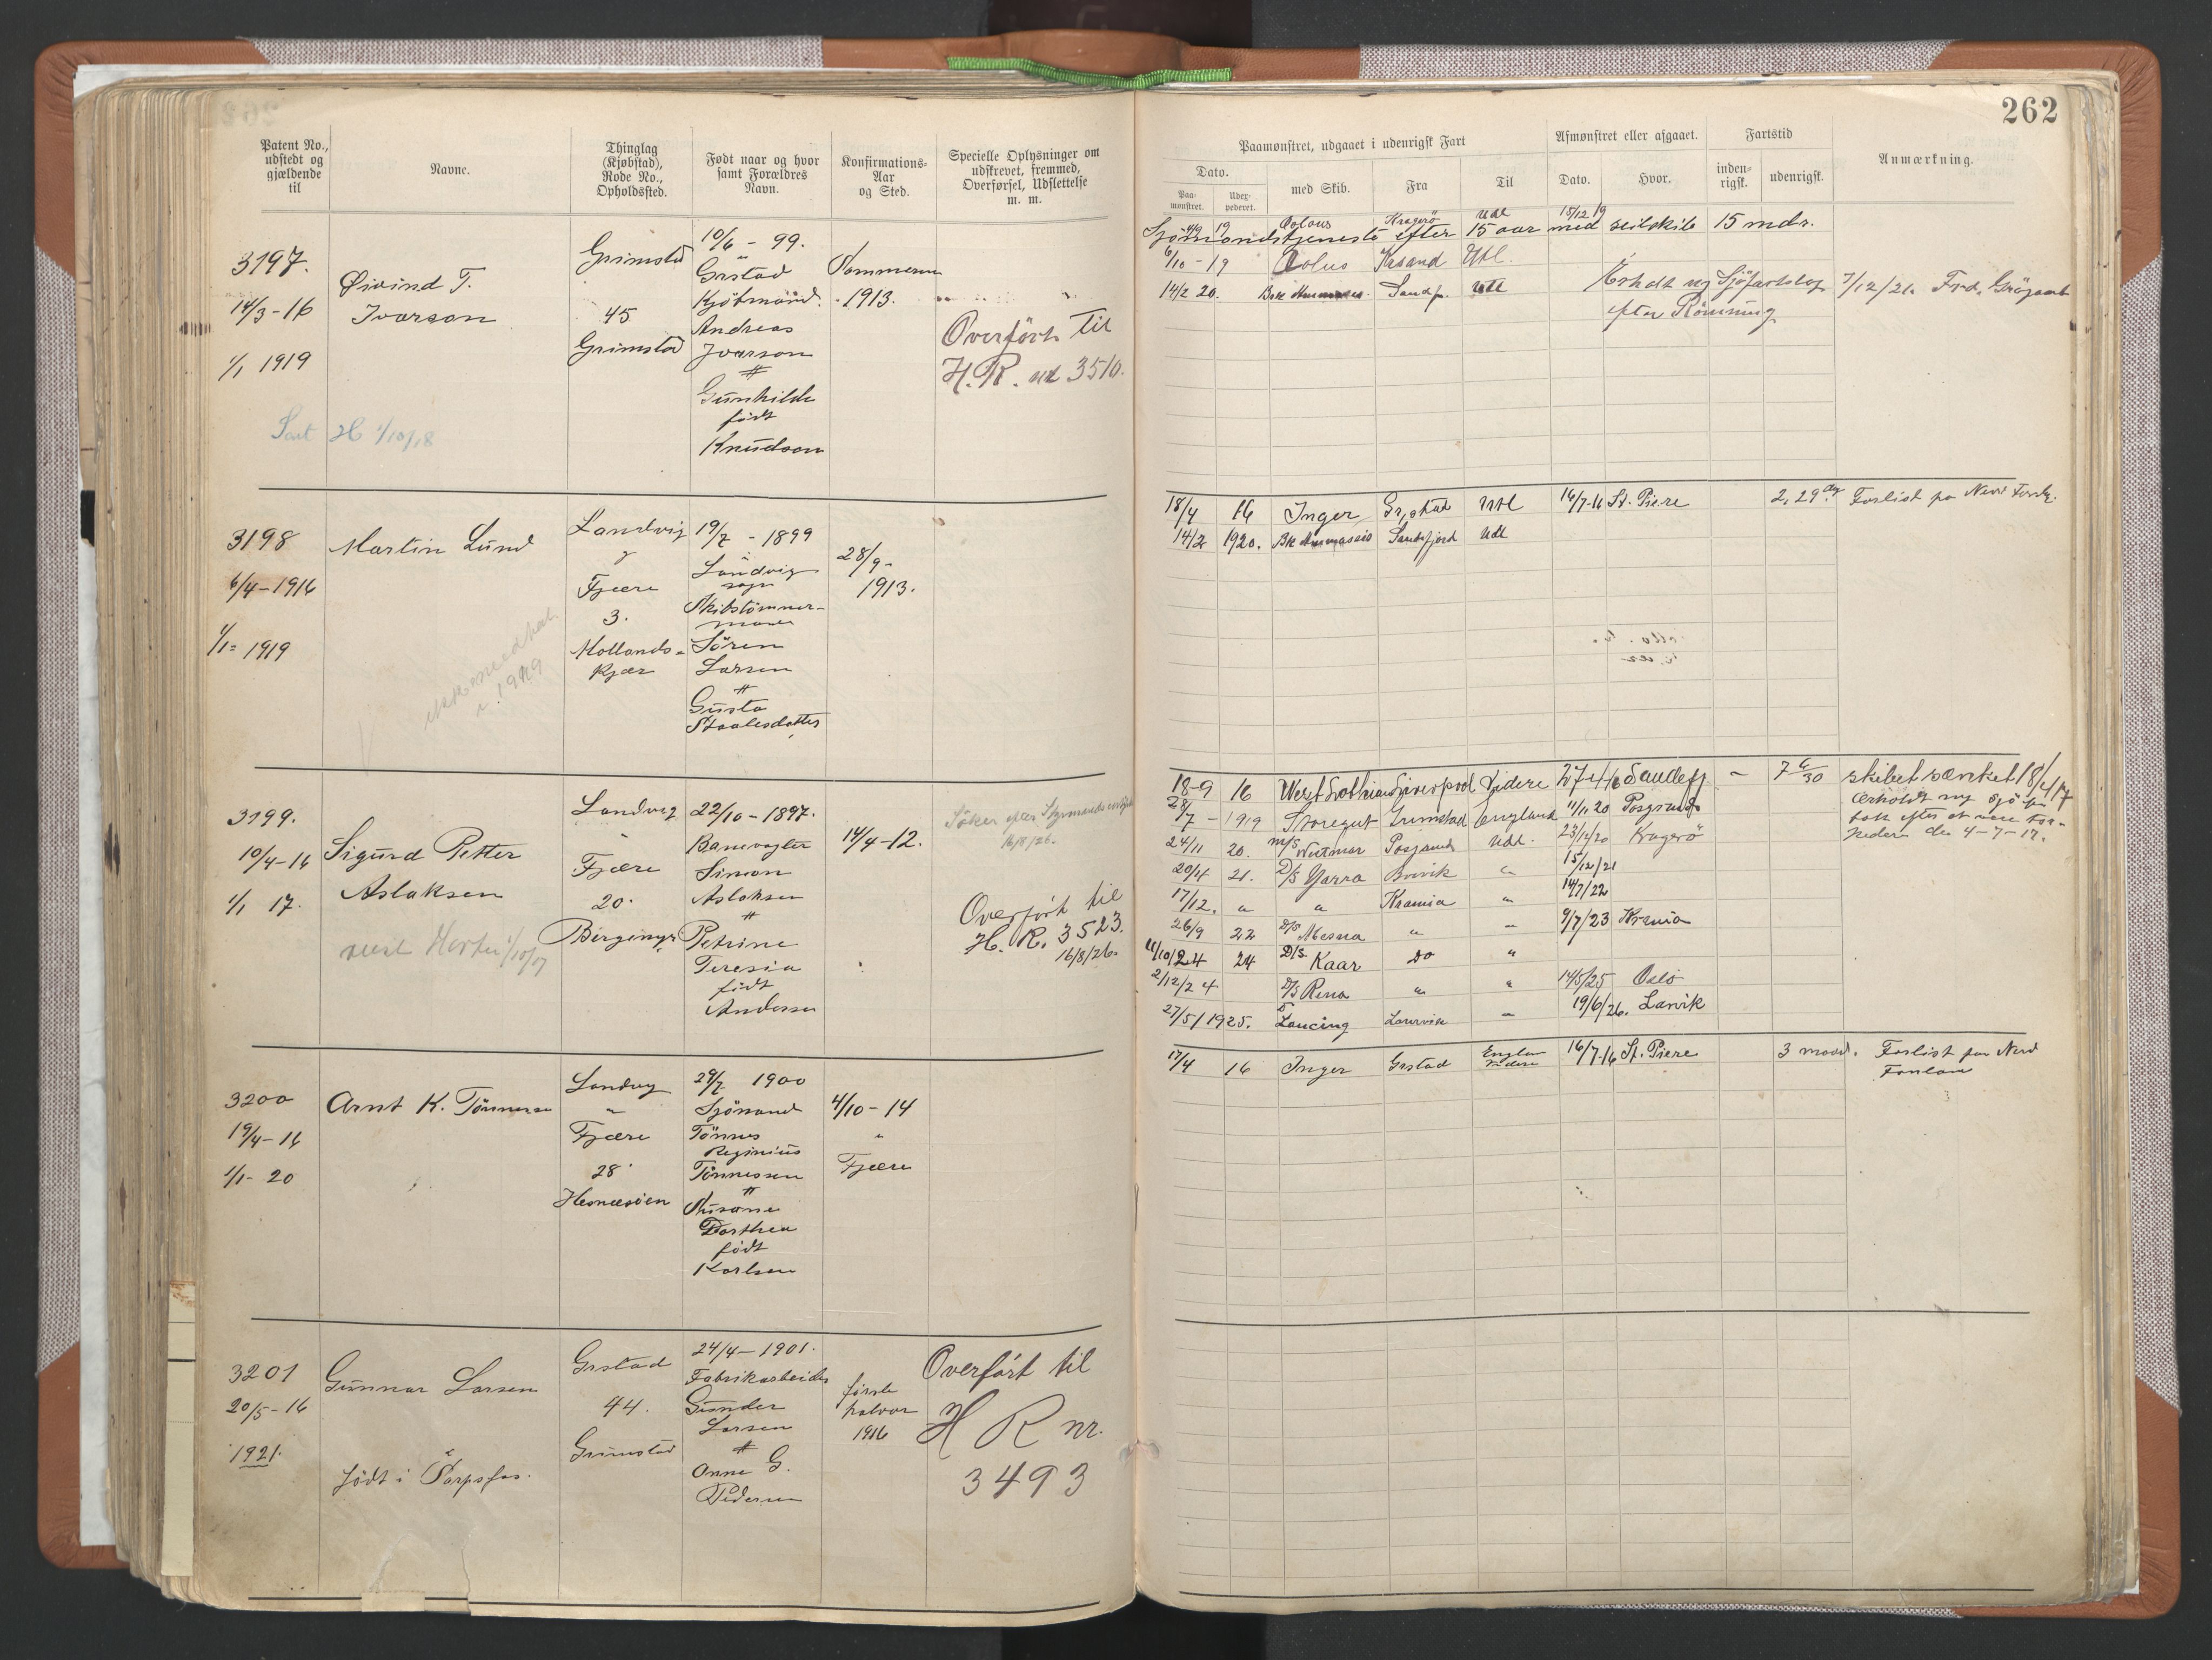 262
Patent No.,
udstedt og
gjældende
til
Navne.
Thinglag
(Kjøbstad),
Rode No.,
Opholdssted.
Født naar og hvor
samt Forældres
Navn.
Konfirmations-
Aar
og Sted.
Specielle Oplysninger om
udskrevet, fremmed,
Overførsel, Udslettelse
m. m.
Paamønstret, udgaaet i udenrigsk Fart
Dato.
Paa-
mønstret.
Udex-
pederet.
med Skib.
Fra
Til
Afmønstret eller afgaaet.
Dato.
Hvor.
Fartstid
inden-
rigsk.
udenrigsk.
Anmærkning.
3197.
14/3-16
1/1 1919
Øivind T.
Ivarson
H 1/10/18
Grimstad
45
Grimstad
10/6 - 99.
Grstad
Kjøbmand
Andreas
Ivarson
Gunhilde
født
Knudson
Sommeren
1913.
Overført til
H.R. 3510.
19
Kragerö
Utl
15/12 19
Sjømandstjeneste efter 15 aar med seilskib 15 mdr.
6/10-19 Krsand Utl.
14/2 20. Sandfj. Utl
Erholdt ny Sjøfartsbog 7/12/21.
efter Rømning
3198
6/4-1916
1/1- 1919
Martin Lund
1919
Landvig
Fjære
3.
19/7 - 1899
Landvig
sogn
Skibstømmer-
mand
Søren
Larsen
Gusta
Staalesdatter
28/9-
1913.
18/4 16 Inger Grstad Utl 16/7-16 St. Piere 2, 29 dg Forlist
14/2 1920. Sandefjord Utl
3199.
10/4-16
1/1 17.
Sigurd Petter
Aslaksen
Landvig
Fjære
20.
22/10-1897.
Banevogter
Simon
Aslaksen
Petrine
Teresia
født
Andersen
14/4-12.
16/8/26.
Overført til
H. R. 3523.
16/8/26.
18-9 16 Liverpool 27-4/16 Sandefj - 7 6/30 skibet sænket 18/4/17
28/7 - 1919 Storegut Grimstad England 11/11 20 Porsgrund
Erholdt ny Sjø
4-7-17.
24/11 20. M/S Porsgrund Udl. 23/12/20 Kragerö
20/4 21. D/S Yarra Brevik " 15/12/21
17/12. " " Krania " 14/7/22
26/9 22 D/S Mesna " - 9/7/23 Krania
11/10/24 24 D/S Kaar do "
2/12/24 D/S Rena " " 14/5/25 Oslo
27/5/1925. Lancing Larvik - 19/6/26. Larvik
3200
19/4-16
1/1- 20
Arnt K. Tønnesen
Landvig
Fjære
28
Hesnæsøen
29/7 1900
Sjömand
Tönnes
Reginius
Tönnessen
Susanne
Dorthea
født
Karlsen
4/10-14
"
Fjære
17/4 16 Inger Grstad 16/7-16 St. Piere 3 maand. Forlist
3201
20/5-16
1921.
Gunnar Larsen
født i Sarpsfos.
Grstad
44.
Grimstad
24/4-1901.
Fabrikarbeider
Gunder
Larsen
Anne G.
Pedersen
første
halvaar
1916
Overført til
H R nr.
3493